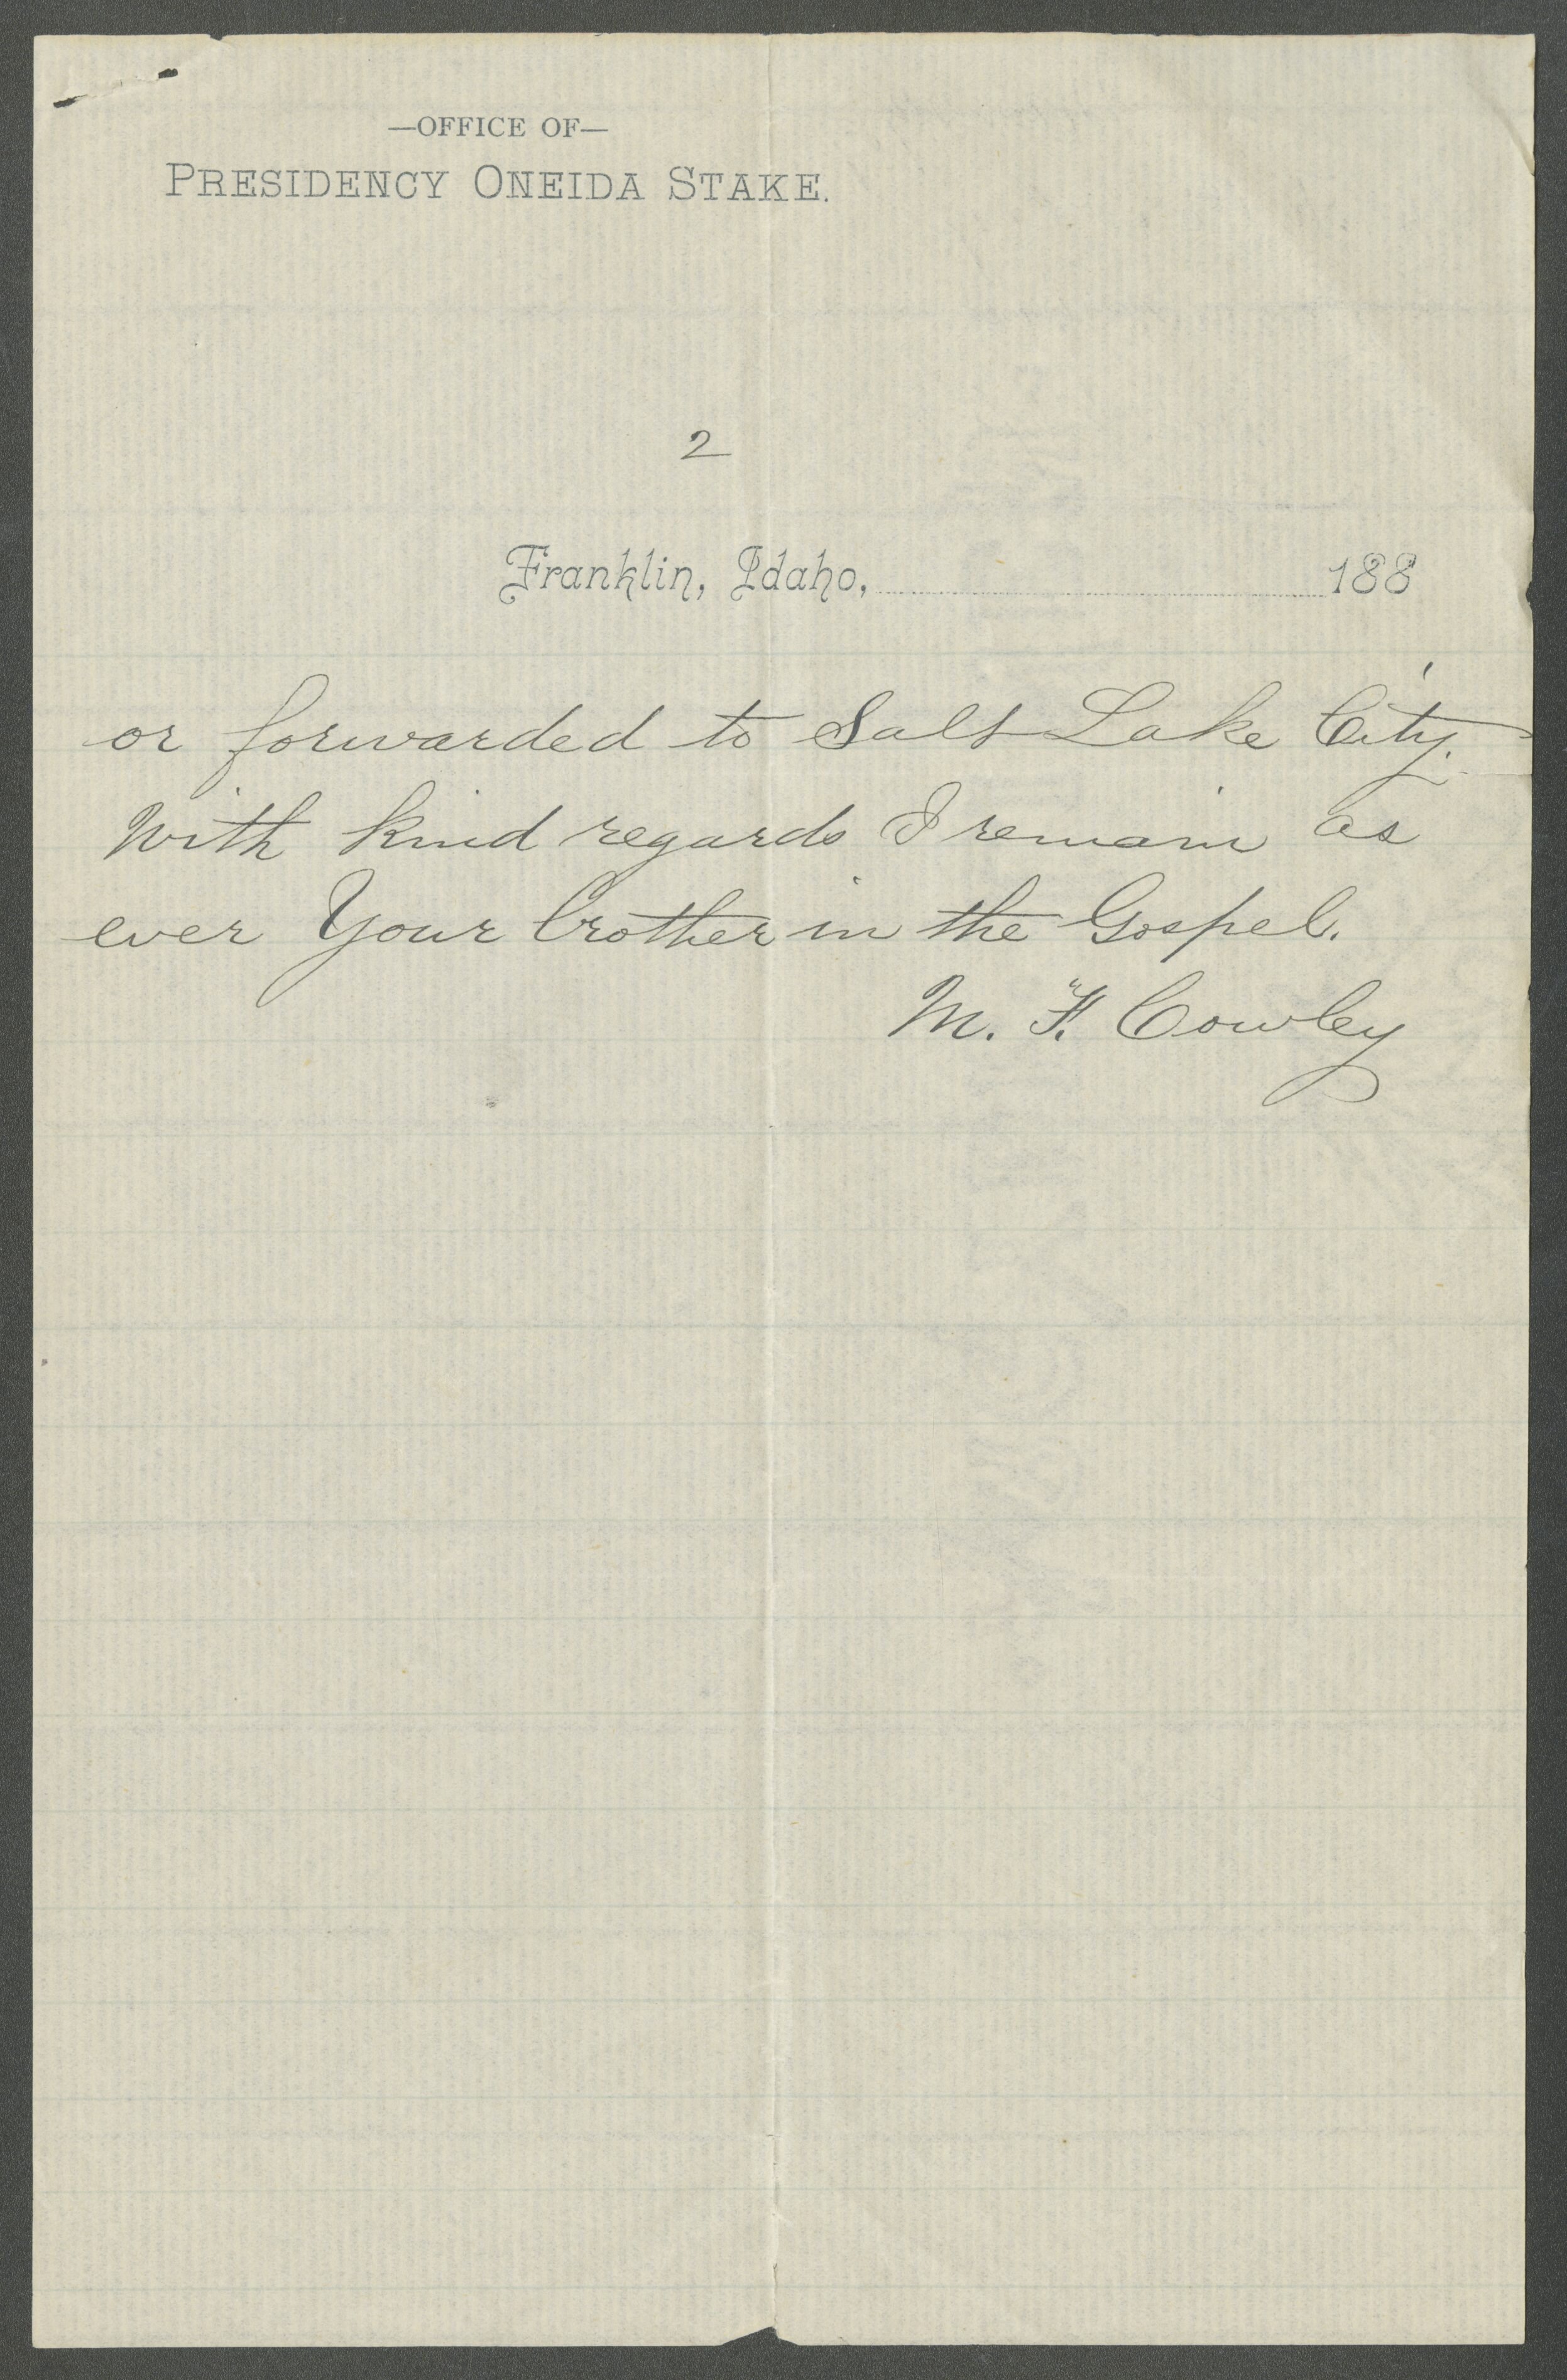 —OFFICE OF—
PRESIDENCY ONEIDA STAKE.
2
Franklin, Idaho, 188
or forwarded to Salt Lake City.
With kind regards I remain as
ever Your brother in the Gospel.
M. F. Cowley